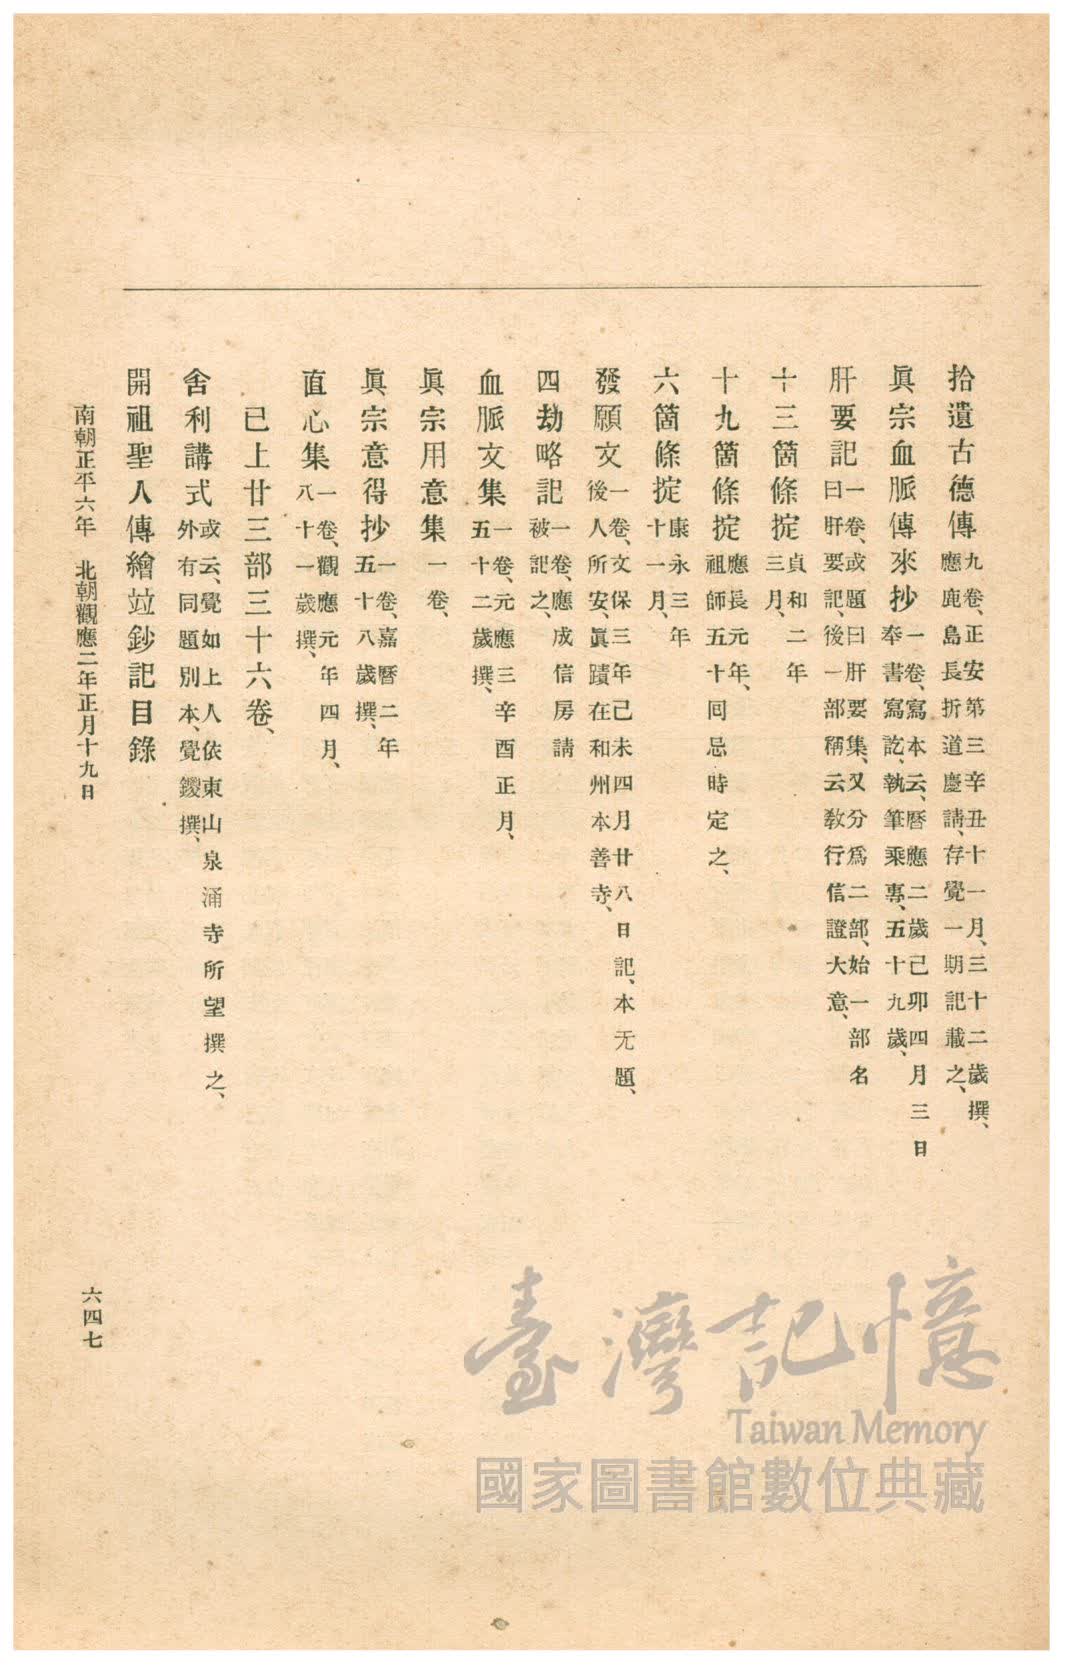 拾遺古德傳九卷、正安第三辛丑十一月、三十二歲撰、
應鹿島長折道慶請、存覺一期記載之、
眞宗血脈傳來抄一卷、寫本云、曆應二歲己卯四月三日
奉書寫訖、執筆乘專、五十九歲、
肝要記一卷、或題曰肝要集、又分爲二部、始一部名
曰肝要記、後一部稱云敎行信證大意、
十三箇條掟貞和二年
三月、
十九箇條掟應長元年、
祖師五十回忌時定之、
六箇條掟康永三年
十一月、
發願文一卷、文保三年己未四月廿八日記、本无題、
後人所安、眞蹟在和州本善寺、
四劫略記一卷、應成信房請
被記之、
血脈文集一卷、元應三辛酉正月、
五十二歲撰、
眞宗用意集一卷、
眞宗意得抄一卷、嘉曆二年
五十八歲撰、
直心集一卷、觀應元年四月、
八十一歲撰、
已上廿三部三十六卷、
舍利講式或云、覺如上人依東山泉涌寺所望撰之、
外有同題別本、覺鑁撰、
開祖聖人傳繪竝鈔記目錄
南朝正平六年 北朝觀應二年正月十九日
六四七
臺灣記憶
Taiwan Memory
國家圖書館數位典藏